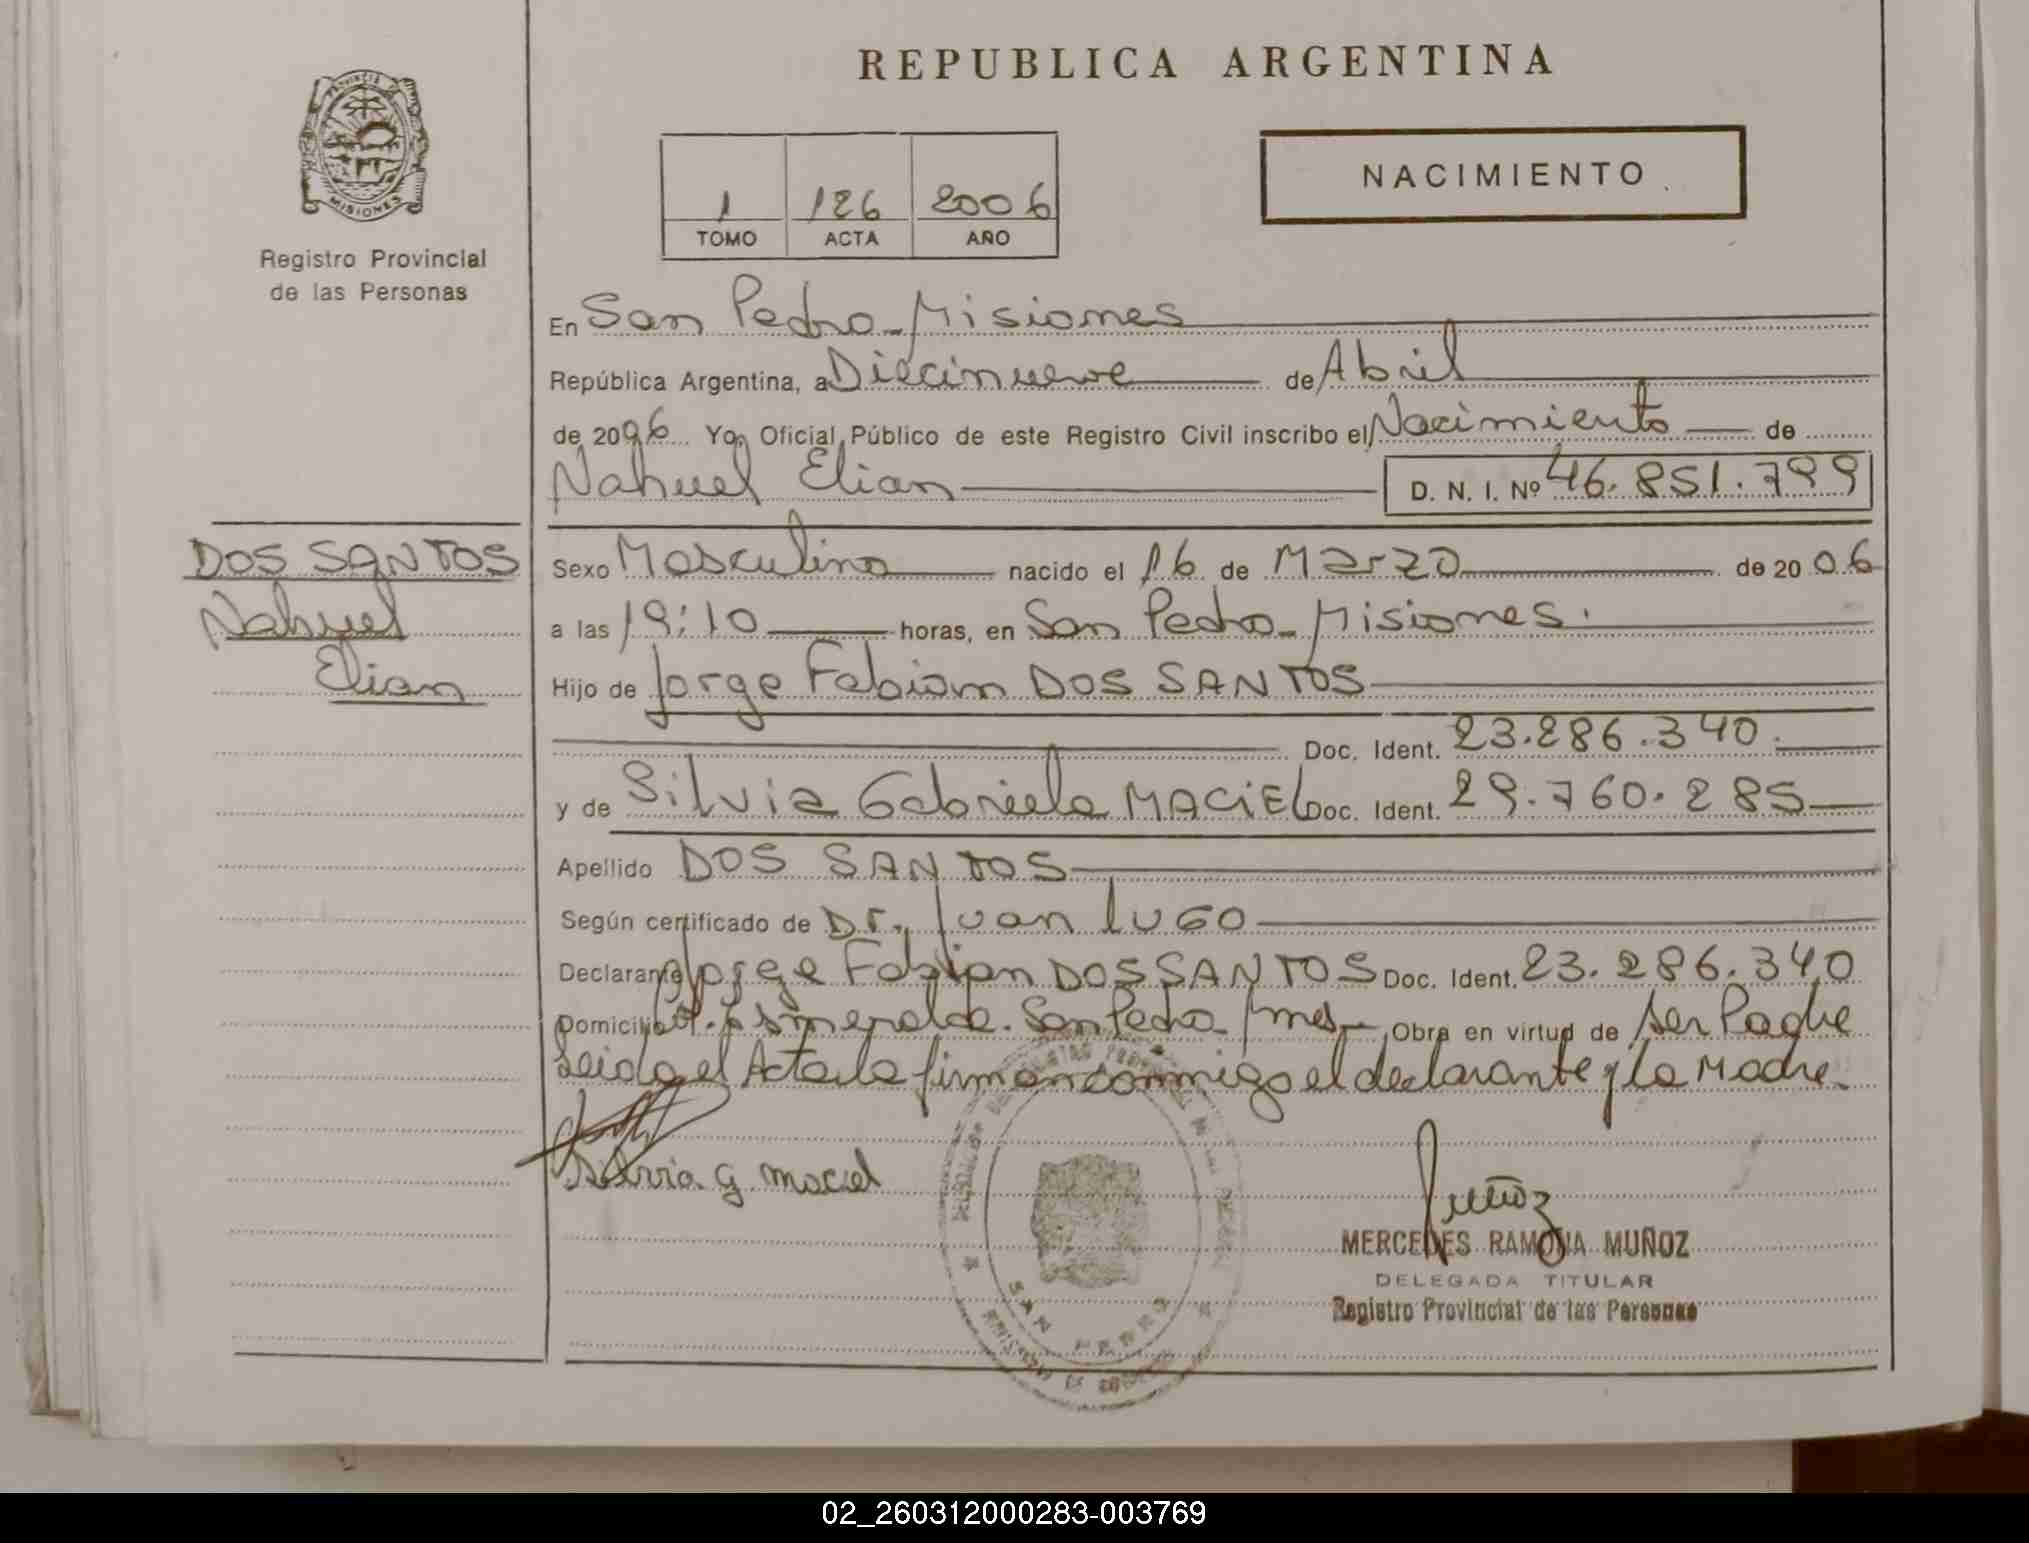 PROVINCIA DE
MISIONES
Registro Provincial
de las Personas
REPUBLICA ARGENTINA
NACIMIENTO
1 126 2006
TOMO ACTA AÑO
En San Pedro - Misiones
República Argentina, a Diecinueve de Abril
de 2006 Yo, Oficial Público de este Registro Civil inscribo el Nacimiento de
Nahuel Elian D. N. I. Nº 46.851.799
DOS SANTOS
Nahuel
Elian
Sexo Masculino nacido el 16 de Marzo de 2006
a las 19:10 horas, en San Pedro - Misiones.
Hijo de Jorge Fabian DOS SANTOS
Doc. Ident. 23.286.340.
y de Silvia Gabriela MACIEL Doc. Ident. 29.760.285
Apellido DOS SANTOS
Según certificado de Dr. Juan LUGO
Declarante Jorge Fabian DOS SANTOS Doc. Ident. 23.286.340
Domicilio Esmeralda. San Pedro Mnes Obra en virtud de ser Padre
Leida el Acta la firman conmigo el declarante y la Madre.
Silvia G Maciel
SAN PEDRO
Muñoz
MERCEDES RAMONA MUÑOZ
DELEGADA TITULAR
Registro Provincial de las Personas
02_260312000283-003769